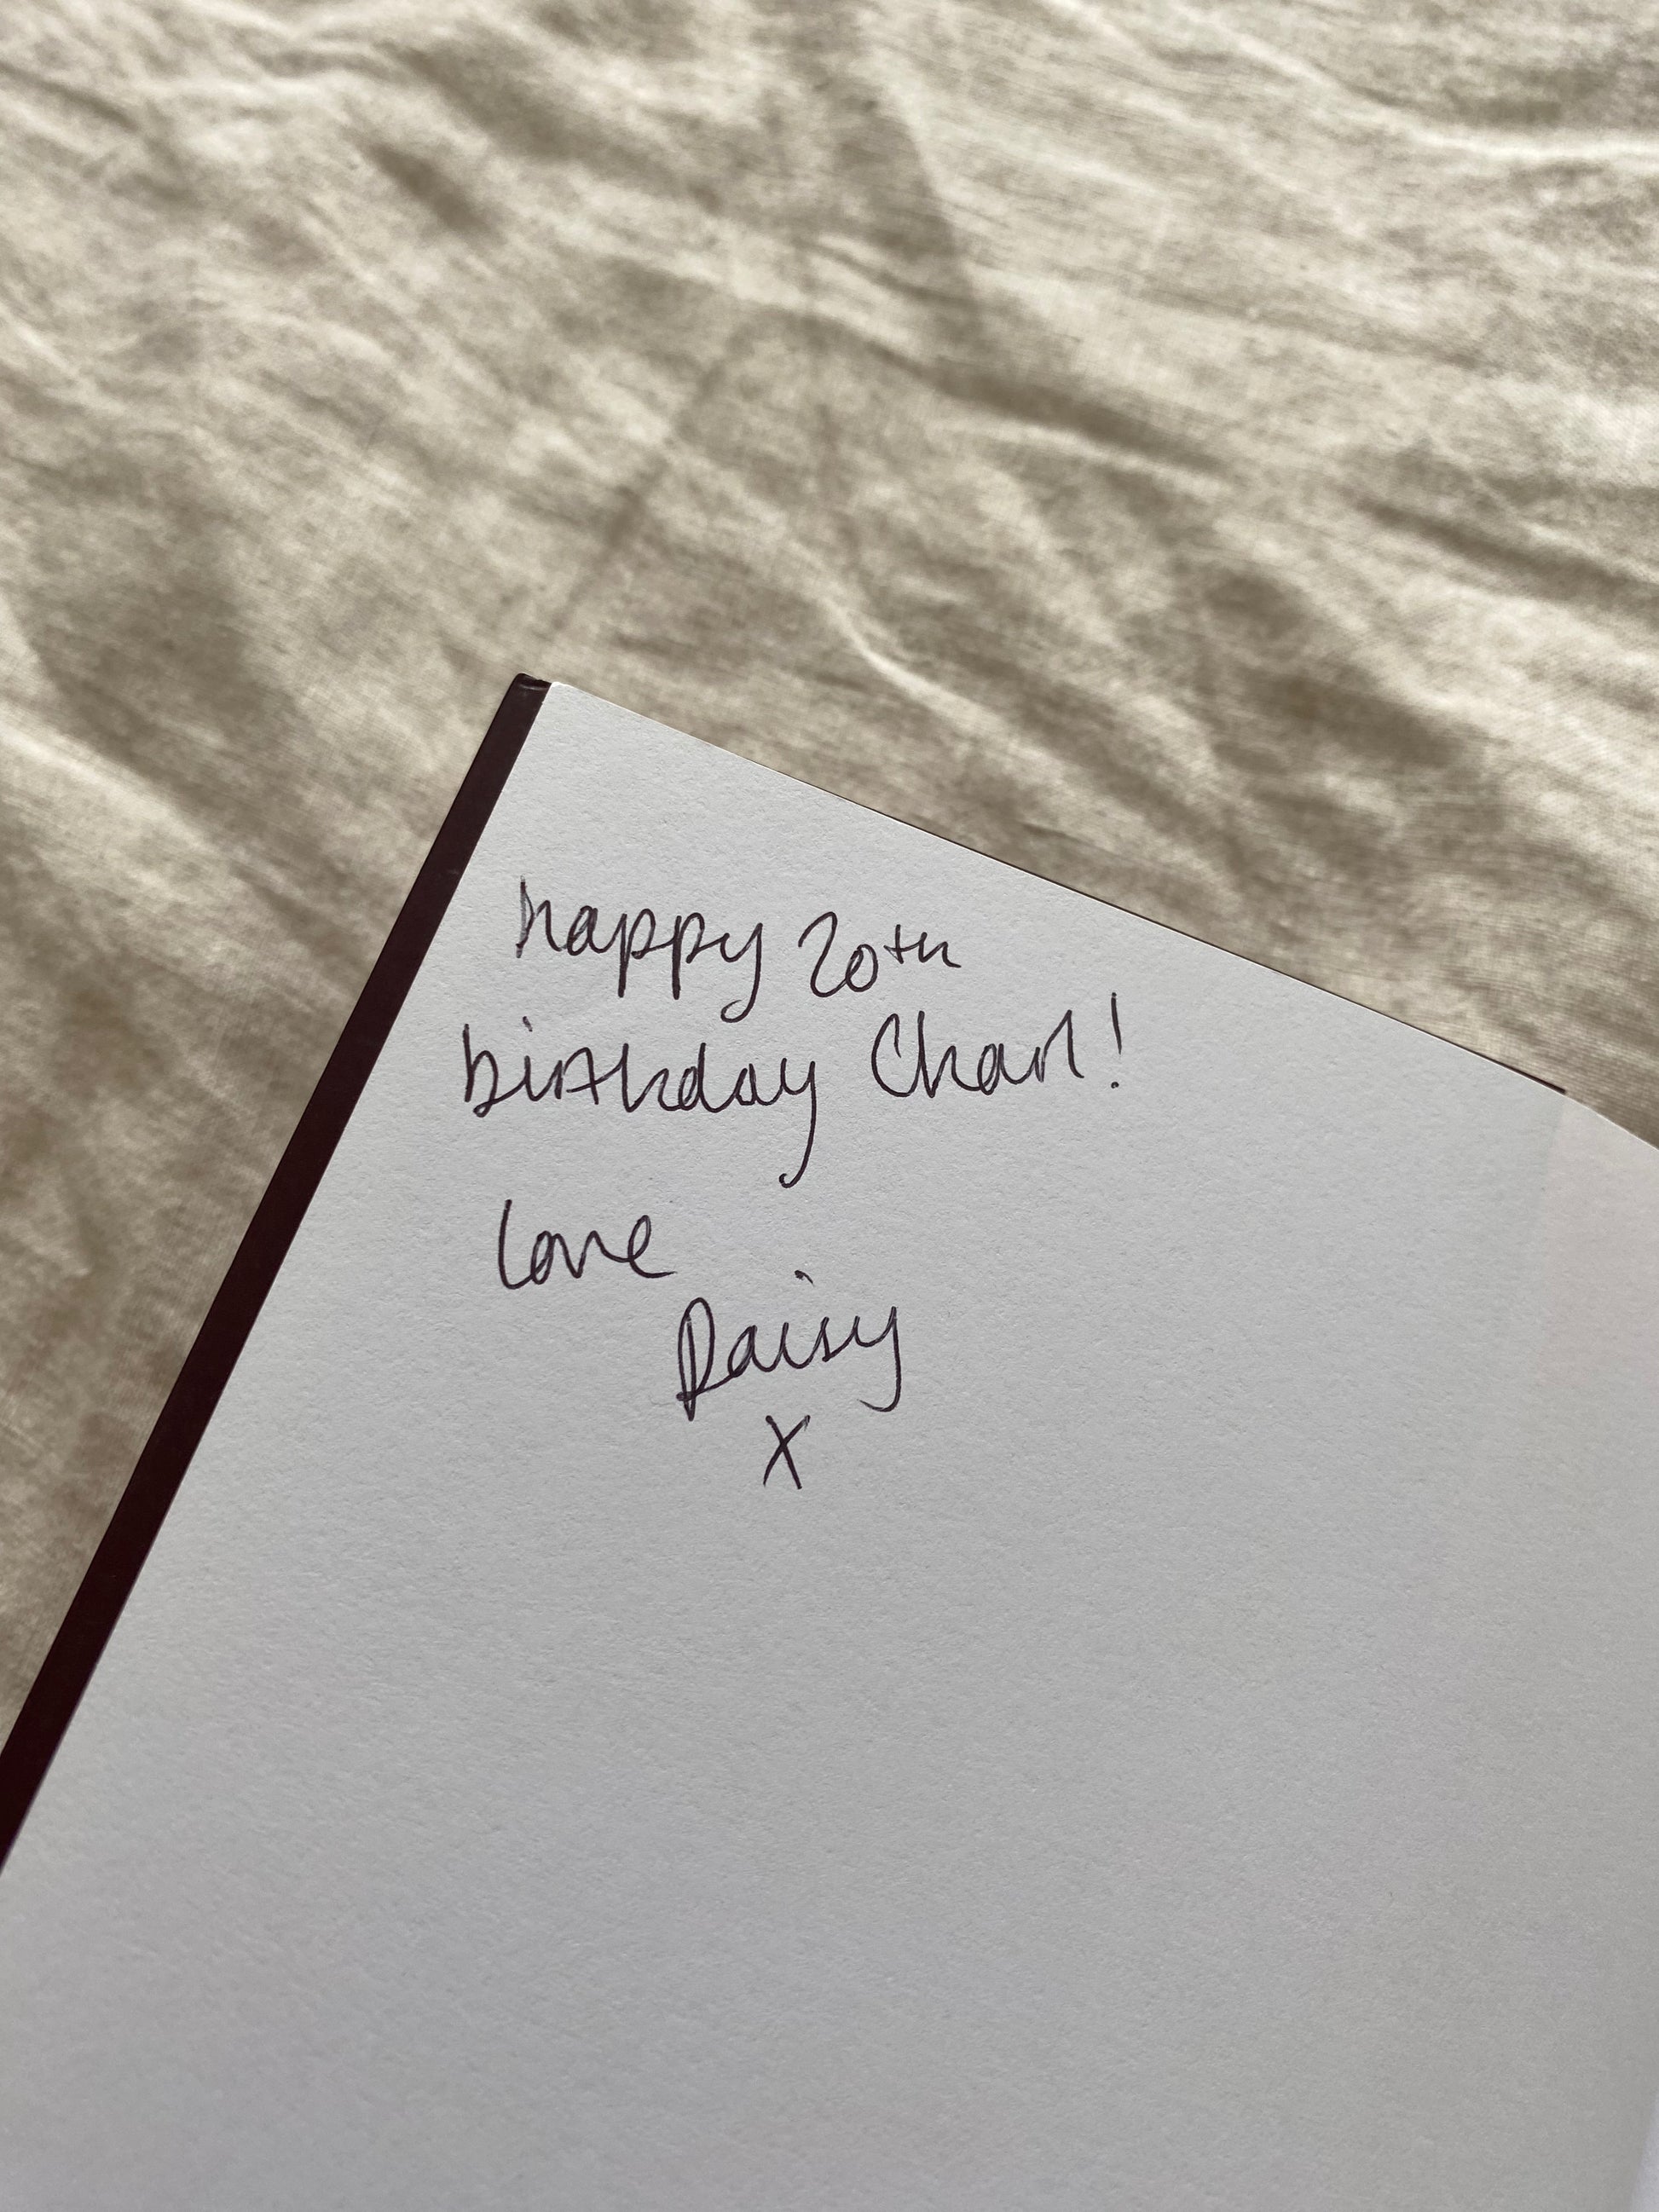 happy 20th
birthday Charl!
love
Daisy
x